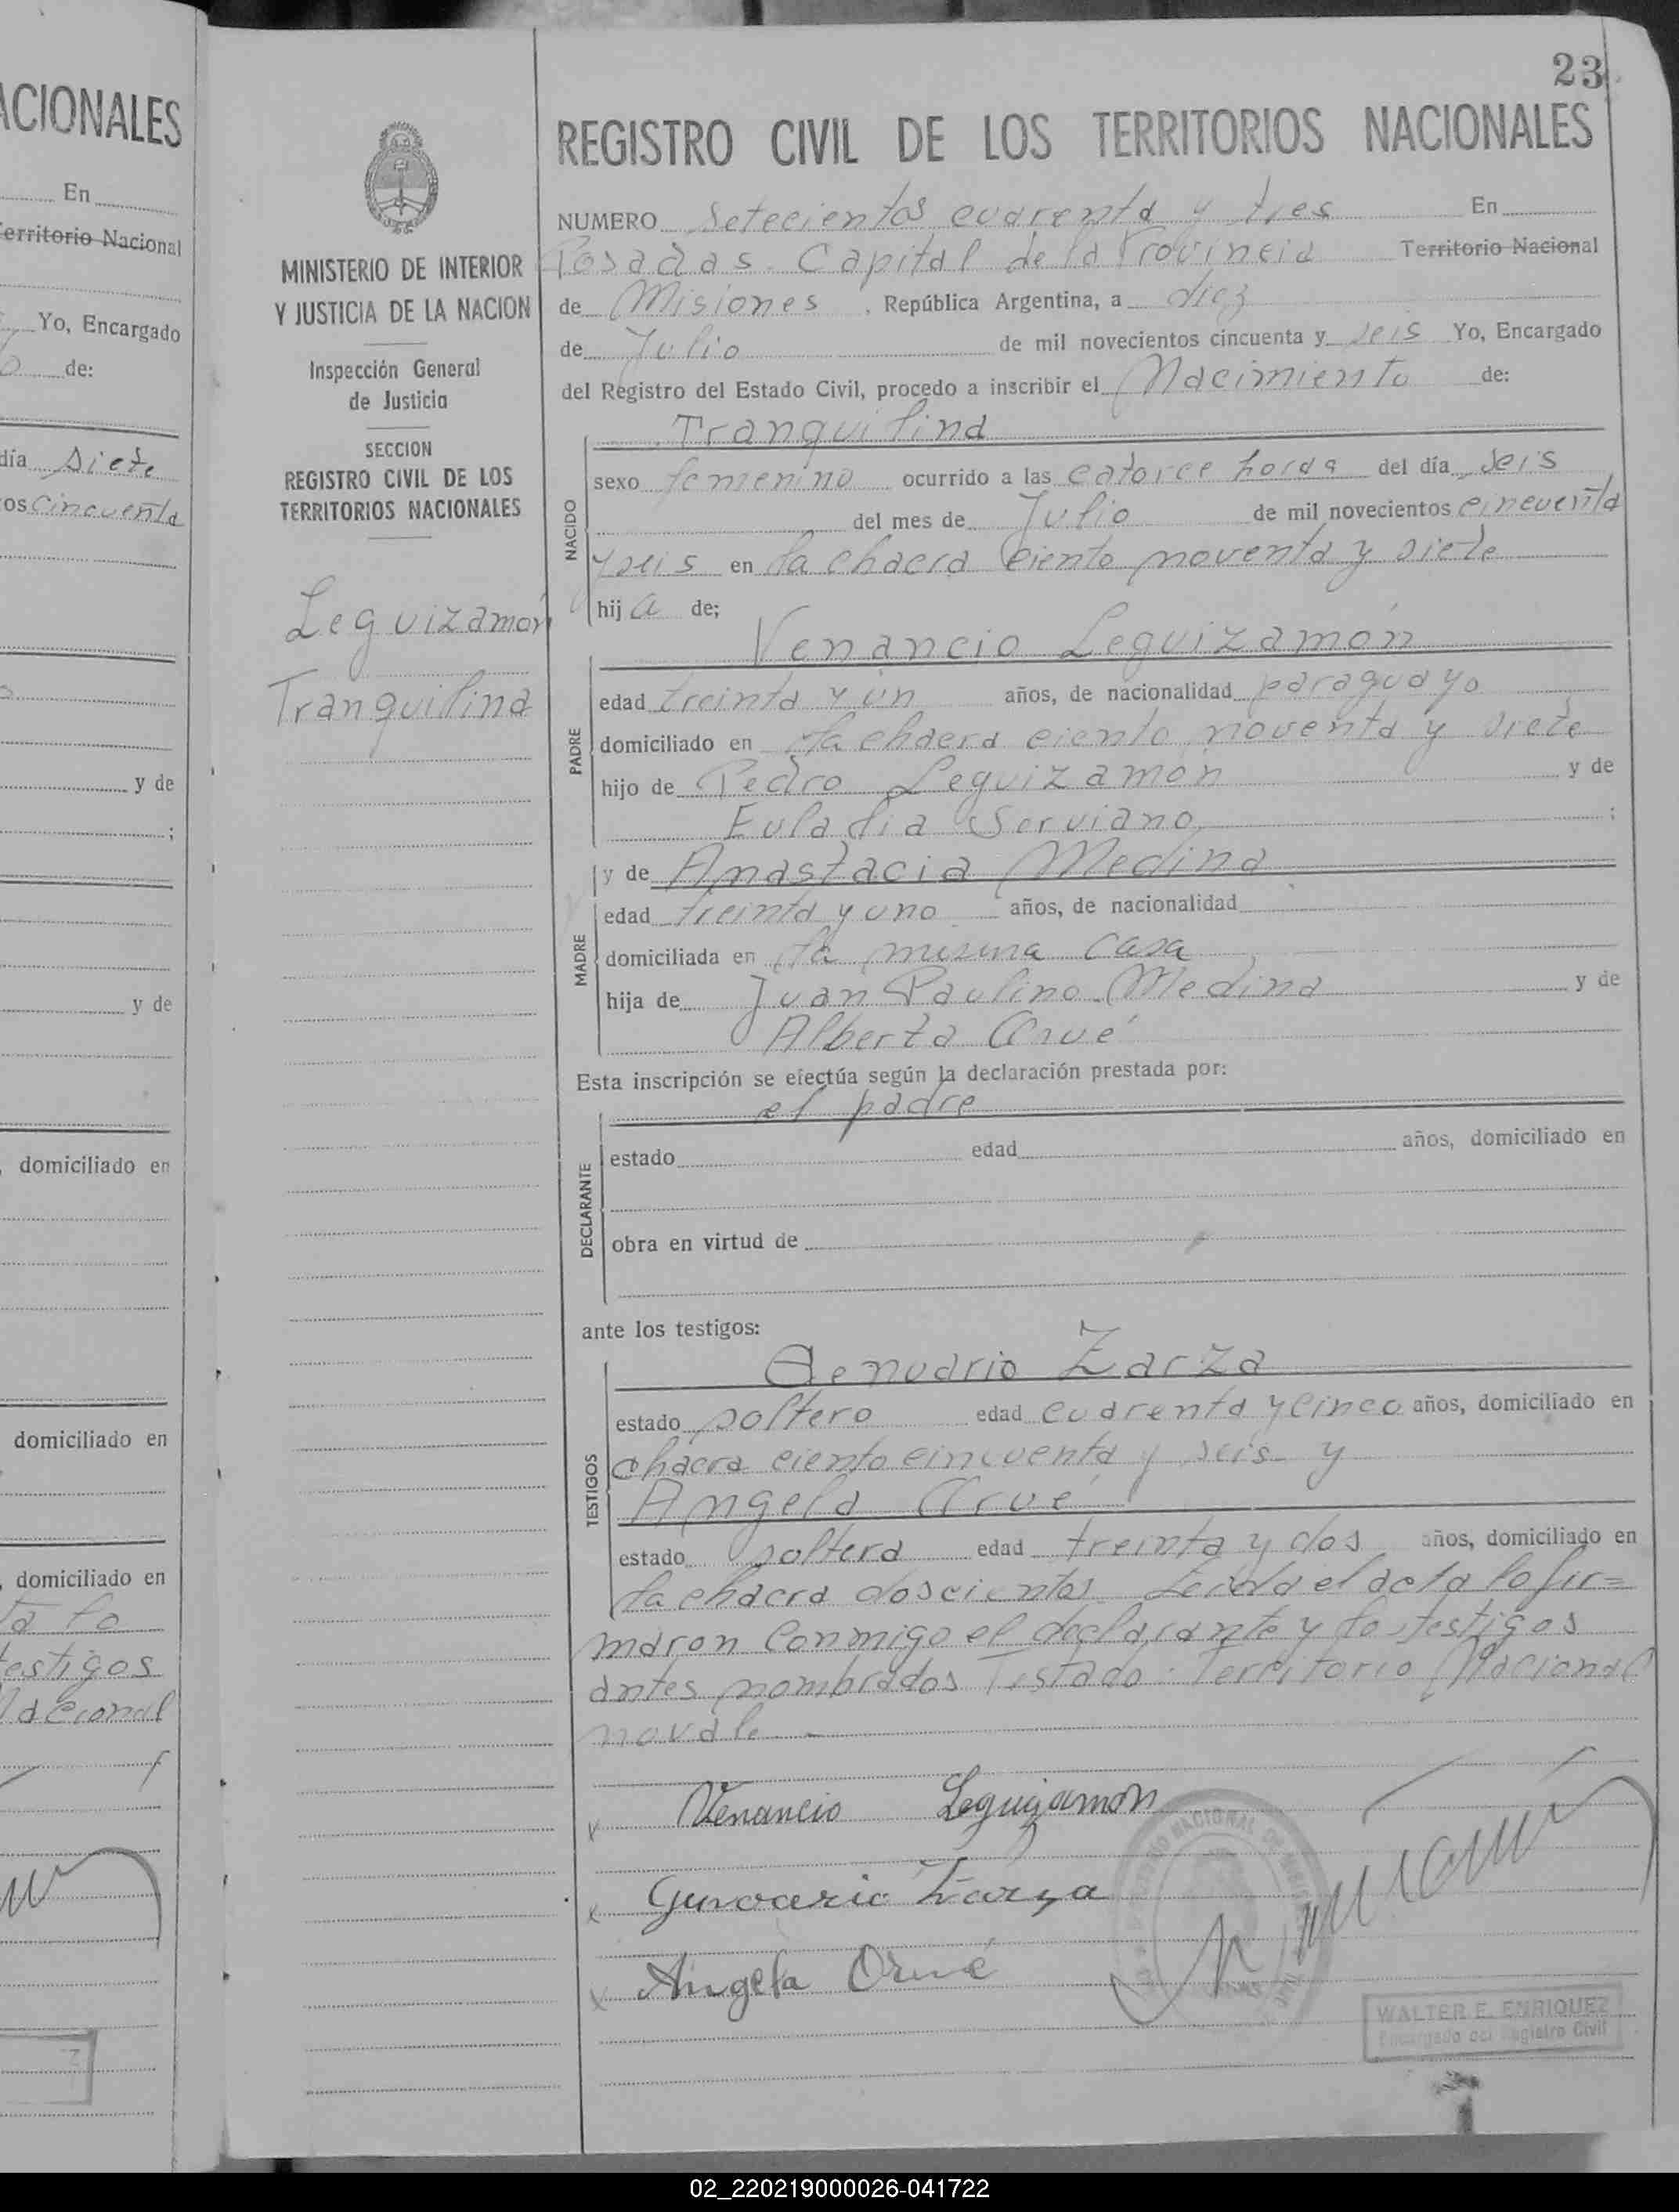 ACIONALES
En
Territorio Nacional
Yo, Encargado
de:
día siete
os cincuenta
y de
;
y de
domiciliado en
domiciliado en
domiciliado en
testigos
Nacional
23
MINISTERIO DE INTERIOR
Y JUSTICIA DE LA NACION
Inspección General
de Justicia
SECCION
REGISTRO CIVIL DE LOS
TERRITORIOS NACIONALES
Leguizamón
Tranquilina
REGISTRO CIVIL DE LOS TERRITORIOS NACIONALES
NUMERO setecientos cuarenta y tres En
Posadas Capital de la Provincia Territorio Nacional
de Misiones, República Argentina, a diez
de Julio de mil novecientos cincuenta y seis Yo, Encargado
del Registro del Estado Civil, procedo a inscribir el Nacimiento de:
Tranquilina
NACIDO
sexo femenino ocurrido a las catorce horas del día seis
del mes de Julio de mil novecientos cincuenta
y seis en la chacra ciento noventa y siete
hija de;
Venancio Leguizamón
PADRE
edad treinta y un años, de nacionalidad paraguayo
domiciliado en la chacra ciento noventa y siete
hijo de Pedro Leguizamón y de
Euladia Serviano ;
MADRE
y de Anastacia Medina
edad treinta y uno años, de nacionalidad
domiciliada en la misma casa
hija de Juan Paulino Medina y de
Alberta Orué
Esta inscripción se efectúa según la declaración prestada por:
el padre
DECLARANTE
estado edad años, domiciliado en
obra en virtud de
ante los testigos:
Genuario Zarza
TESTIGOS
estado soltero edad cuarenta y cinco años, domiciliado en
chacra ciento cincuenta y seis y
Angela Orué
estado soltera edad treinta y dos años, domiciliado en
la chacra doscientos Leida el acta la fir=
maron conmigo el declarante y los testigos
antes nombrados Testado: Territorio Nacional
no vale
Venancio Leguizamón
Genoario Zarza
Angela Orué
WALTER E. ENRIQUEZ
Encargado del Registro Civil
02_220219000026-041722